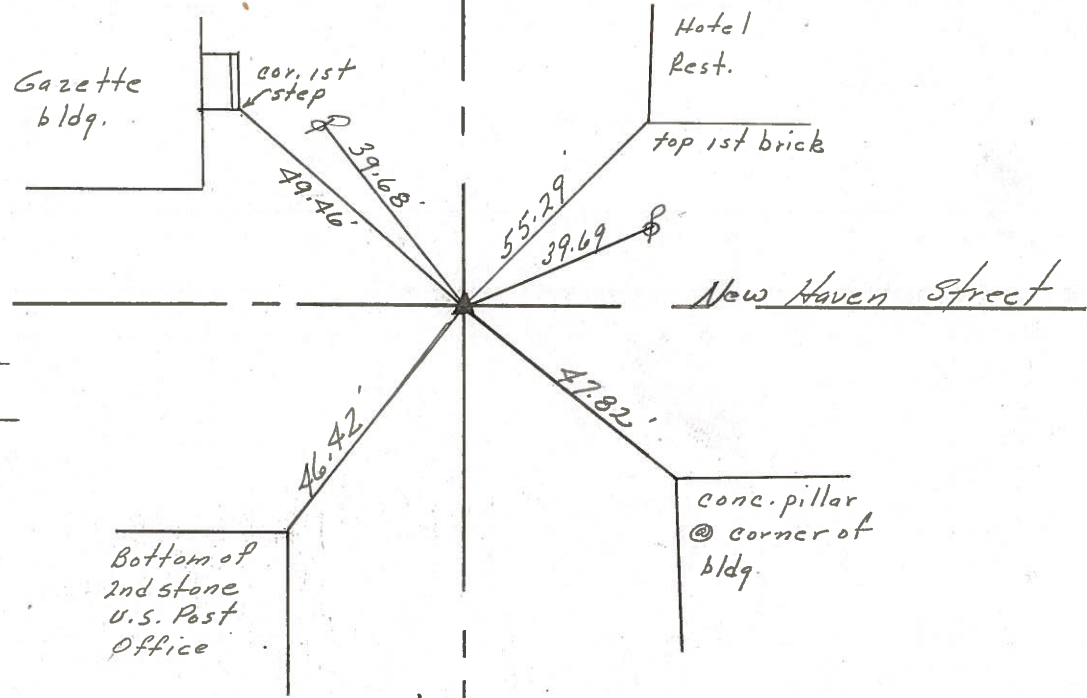 Gazette
bldg.
cor. 1st
step
39.68'
49.46'
Hotel
Rest.
top 1st brick
55.29
39.69
New Haven Street
46.42'
47.82'
Bottom of
2nd stone
U.S. Post
Office
conc. pillar
@ corner of
bldg.